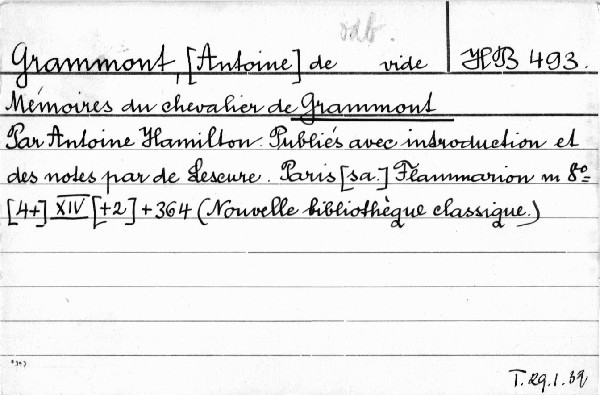 odb.
Grammont, [Antoine] de vide HB 493.
Mémoires du chevalier de Grammont
Par Antoine Hamilton. Publiés avec introduction et
des notes par de Lescure. Paris [sa.] Flammarion m 8º
[4+] XIV [+2] + 364 (Nouvelle bibliothèque classique.)
T. 29.1.32